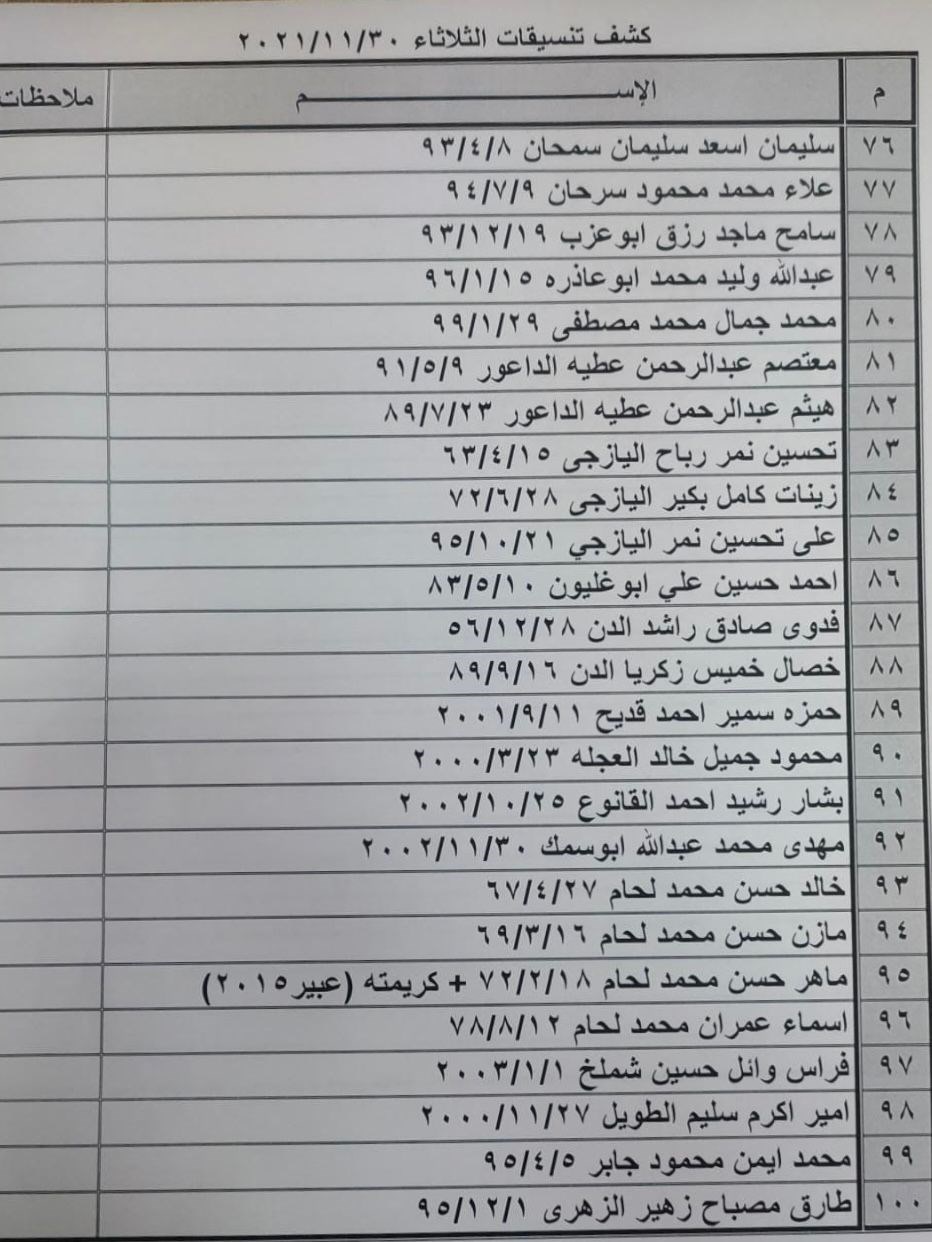 كشف تنسيقات الثلاثاء ٢٠٢١/١١/٣٠
م الإســـــــــم ملاحظات
٧٦ سليمان اسعد سليمان سمحان ٩٣/٤/٨
٧٧ علاء محمد محمود سرحان ٩٤/٧/٩
٧٨ سامح ماجد رزق ابوعزب ٩٣/١٢/١٩
٧٩ عبدالله وليد محمد ابوعاذره ٩٦/١/١٥
٨٠ محمد جمال محمد مصطفى ٩٩/١/٢٩
٨١ معتصم عبدالرحمن عطيه الداعور ٩١/٥/٩
٨٢ هيثم عبدالرحمن عطيه الداعور ٨٩/٧/٢٣
٨٣ تحسين نمر رباح اليازجى ٦٣/٤/١٥
٨٤ زينات كامل بكير اليازجى ٧٢/٦/٢٨
٨٥ على تحسين نمر اليازجي ٩٥/١٠/٢١
٨٦ احمد حسين علي ابوغليون ٨٣/٥/١٠
٨٧ فدوى صادق راشد الدن ٥٦/١٢/٢٨
٨٨ خصال خميس زكريا الدن ٨٩/٩/١٦
٨٩ حمزه سمير احمد قديح ٢٠٠١/٩/١١
٩٠ محمود جميل خالد العجله ٢٠٠٠/٣/٢٣
٩١ بشار رشيد احمد القانوع ٢٠٠٢/١٠/٢٥
٩٢ مهدى محمد عبدالله ابوسمك ٢٠٠٢/١١/٣٠
٩٣ خالد حسن محمد لحام ٦٧/٤/٢٧
٩٤ مازن حسن محمد لحام ٦٩/٣/١٦
٩٥ ماهر حسن محمد لحام ٧٢/٢/١٨ + كريمته (عبير٢٠١٥)
٩٦ اسماء عمران محمد لحام ٧٨/٨/١٢
٩٧ فراس وائل حسين شملخ ٢٠٠٣/١/١
٩٨ امير اكرم سليم الطويل ٢٠٠٠/١١/٢٧
٩٩ محمد ايمن محمود جابر ٩٥/٤/٥
١٠٠ طارق مصباح زهير الزهرى ٩٥/١٢/١